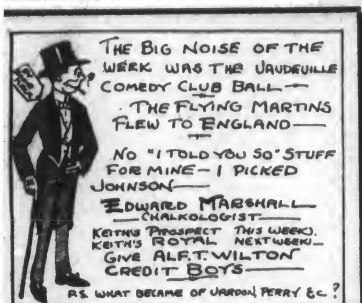 THE BIG NOISE OF THE
WEEK WAS THE VAUDEVILLE
COMEDY CLUB BALL—
THE FLYING MARTINS
FLEW TO ENGLAND—
NO "I TOLD YOU SO" STUFF
FOR MINE—I PICKED
JOHNSON—
EDWARD MARSHALL
—CHALKOLOGIST—
KEITH'S PROSPECT THIS WEEK.
KEITH'S ROYAL NEXT WEEK—
GIVE ALF. T. WILTON
CREDIT BOYS—
P.S. WHAT BECAME OF VARDON, PERRY &C.?